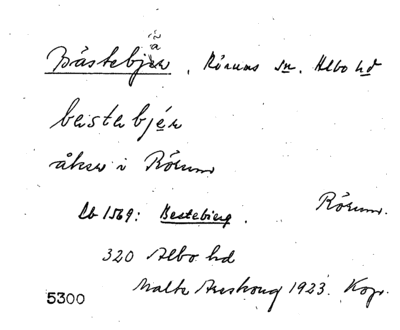 Båstebjär, Rörums sn. Albo hd
bastabjér
åker i Rörum
Rörum.
Lb 1569: Bestebierg.
320 Albo hd
Malte Areskoug 1923. Kop.
5300